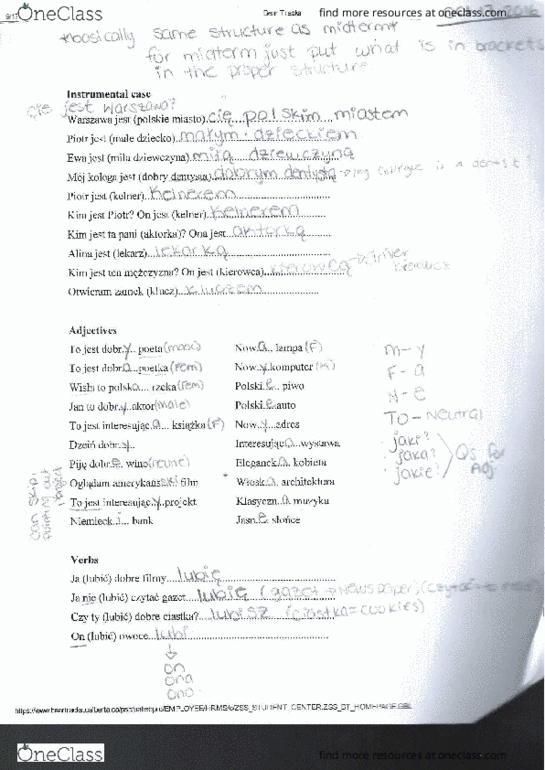 OneClass
find more resources at oneclass.com
*basically same structure as midterm*
for midterm just put what is in brackets
in the proper structure
Instrumental case
jest Warszawa?
Warszawa jest (polskie miasto) polskim miastem
Piotr jest (małe dziecko) małym dzieckiem
Ewa jest (miła dziewczyna) miłą dziewczyną
Mój kolega jest (dobry dentysta) dobrym dentystą
Piotr jest (kelner) kelnerem
Kim jest Piotr? On jest (kelner) kelnerem
Kim jest ta pani (aktorka)? Ona jest aktorką
Alina jest (lekarz) lekarką
Kim jest ten mężczyzna? On jest (kierowca) driver
Otwieram zamek (klucz) kluczem
Adjectives
To jest dobr.y.. poeta (masc)
To jest dobr.a.. poetka (fem)
Wisła to polska... rzeka (fem)
Jan to dobr.y.. aktor (male)
To jest interesując.a.. książka (F)
Dzień dobr.y..
Piję dobr.e.. wino
Oglądam amerykańs film
To jest interesując.y.. projekt
Niemieck.i... bank
Now.a... lampa (F)
Now.y..komputer
Polski.e... piwo
Polski.e..auto
Now.y...adres
Interesując.a...wystawa
Eleganck.a.. kobieta
Włosk.a.. architektura
Klasyczn..a. muzyka
Jasn.e.. słońce
M-y
F-a
N-e
TO-Neutral
jaki?
jaka?
jakie?
Qs for
Adj
Verbs
Ja (lubić) dobre filmy...lubię
Ja nie (lubić) czytać gazet...lubię (gazet → newspaper,
Czy ty (lubić) dobre ciastka?...lubisz (ciastka=cookies)
On (lubić) owoce...lubi
on
ona
ono
OneClass
find more resources at oneclass.com